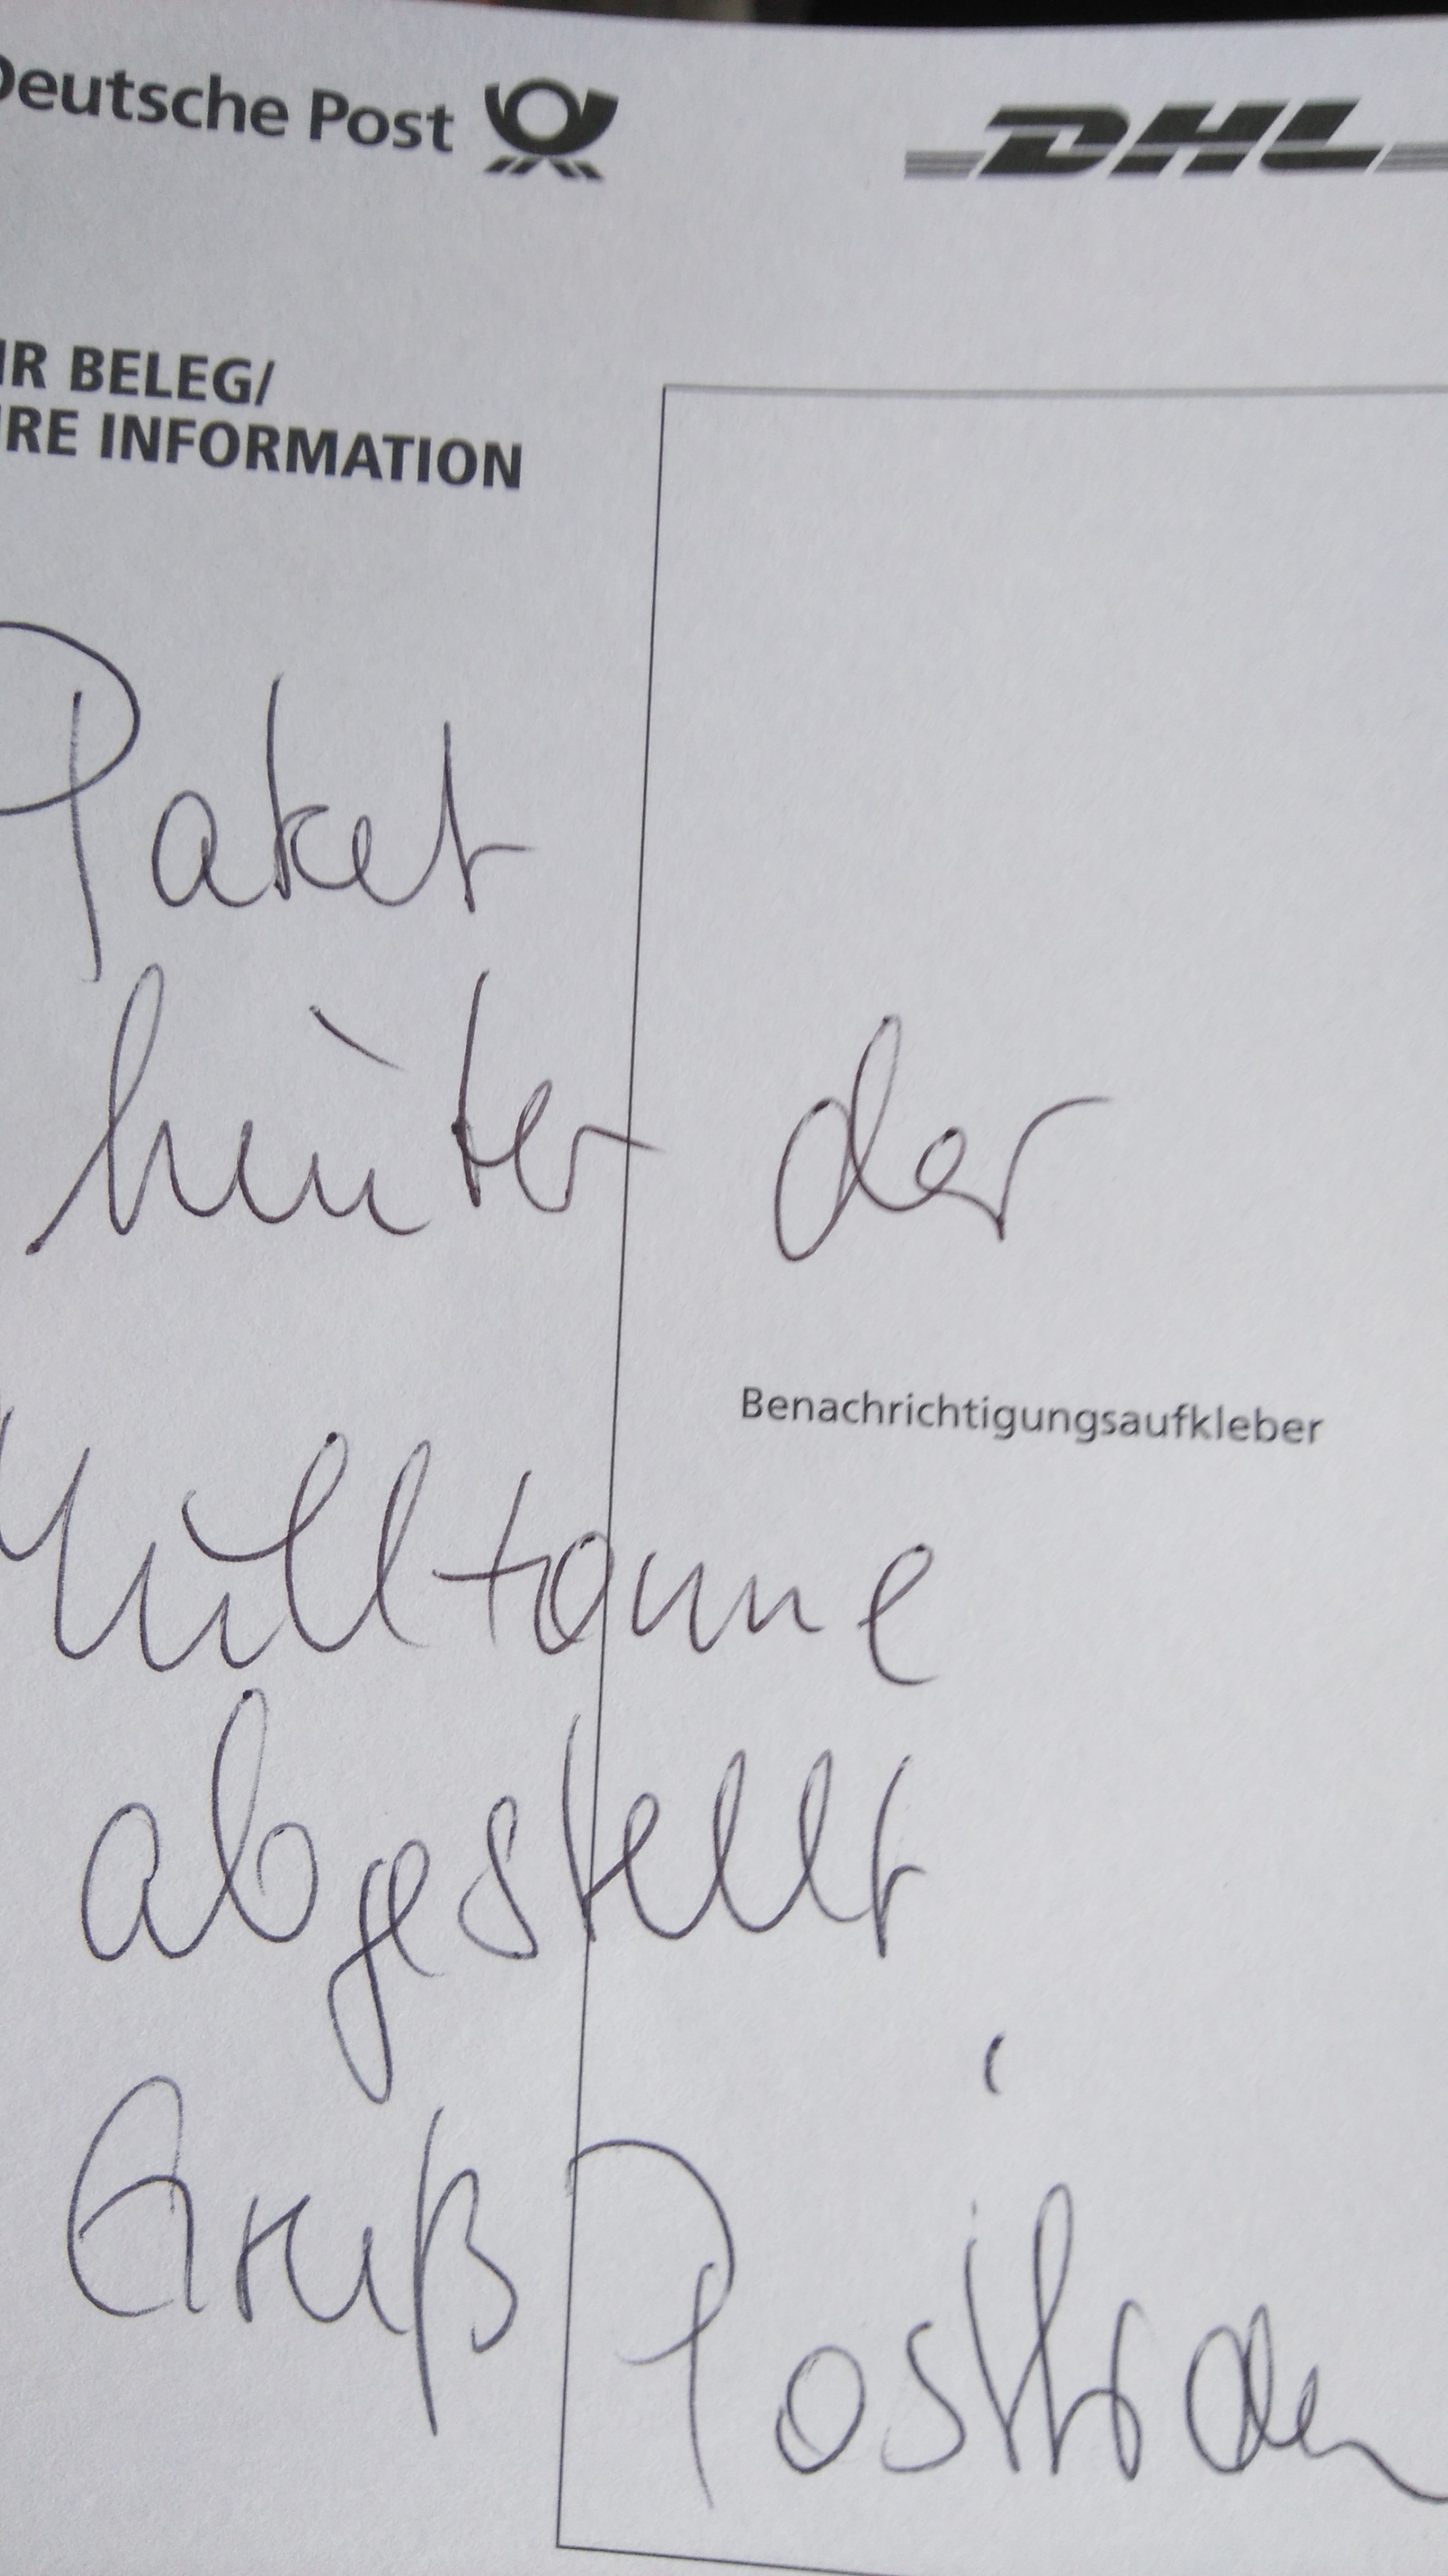 Deutsche Post DHL
IR BELEG/
RE INFORMATION
Paket
hinter der
Benachrichtigungsaufkleber
Mülltonne
abgestellt
Gruß